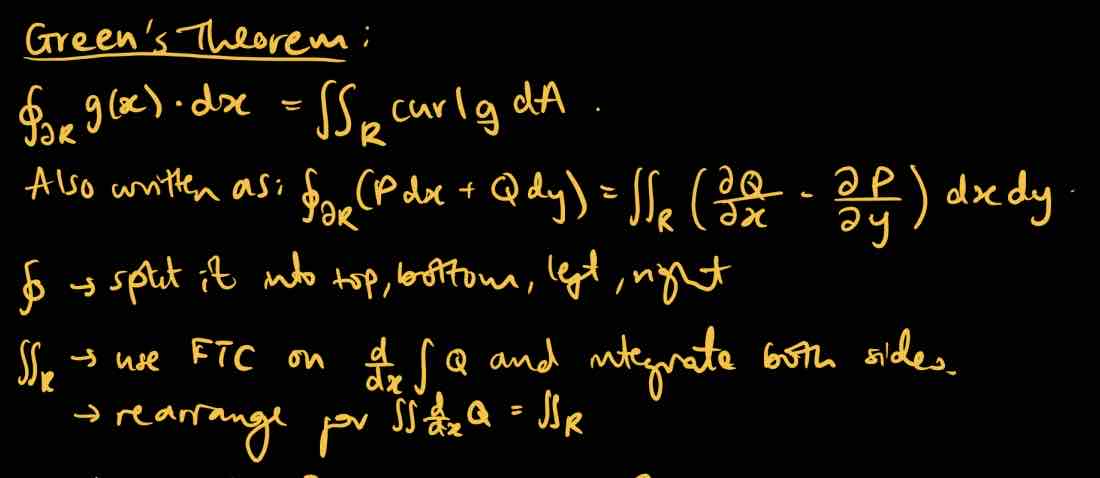 Green's Theorem:
∮_∂R g(x)·dx = ∬_R curl g dA.
Also written as: ∮_∂R (P dx + Q dy) = ∬_R (∂Q/∂x - ∂P/∂y) dx dy.
∮ → split it into top, bottom, left, right
∬_R → use FTC on d/dx ∫ Q and integrate both sides.
→ rearrange for ∬ d/dx Q = ∬_R